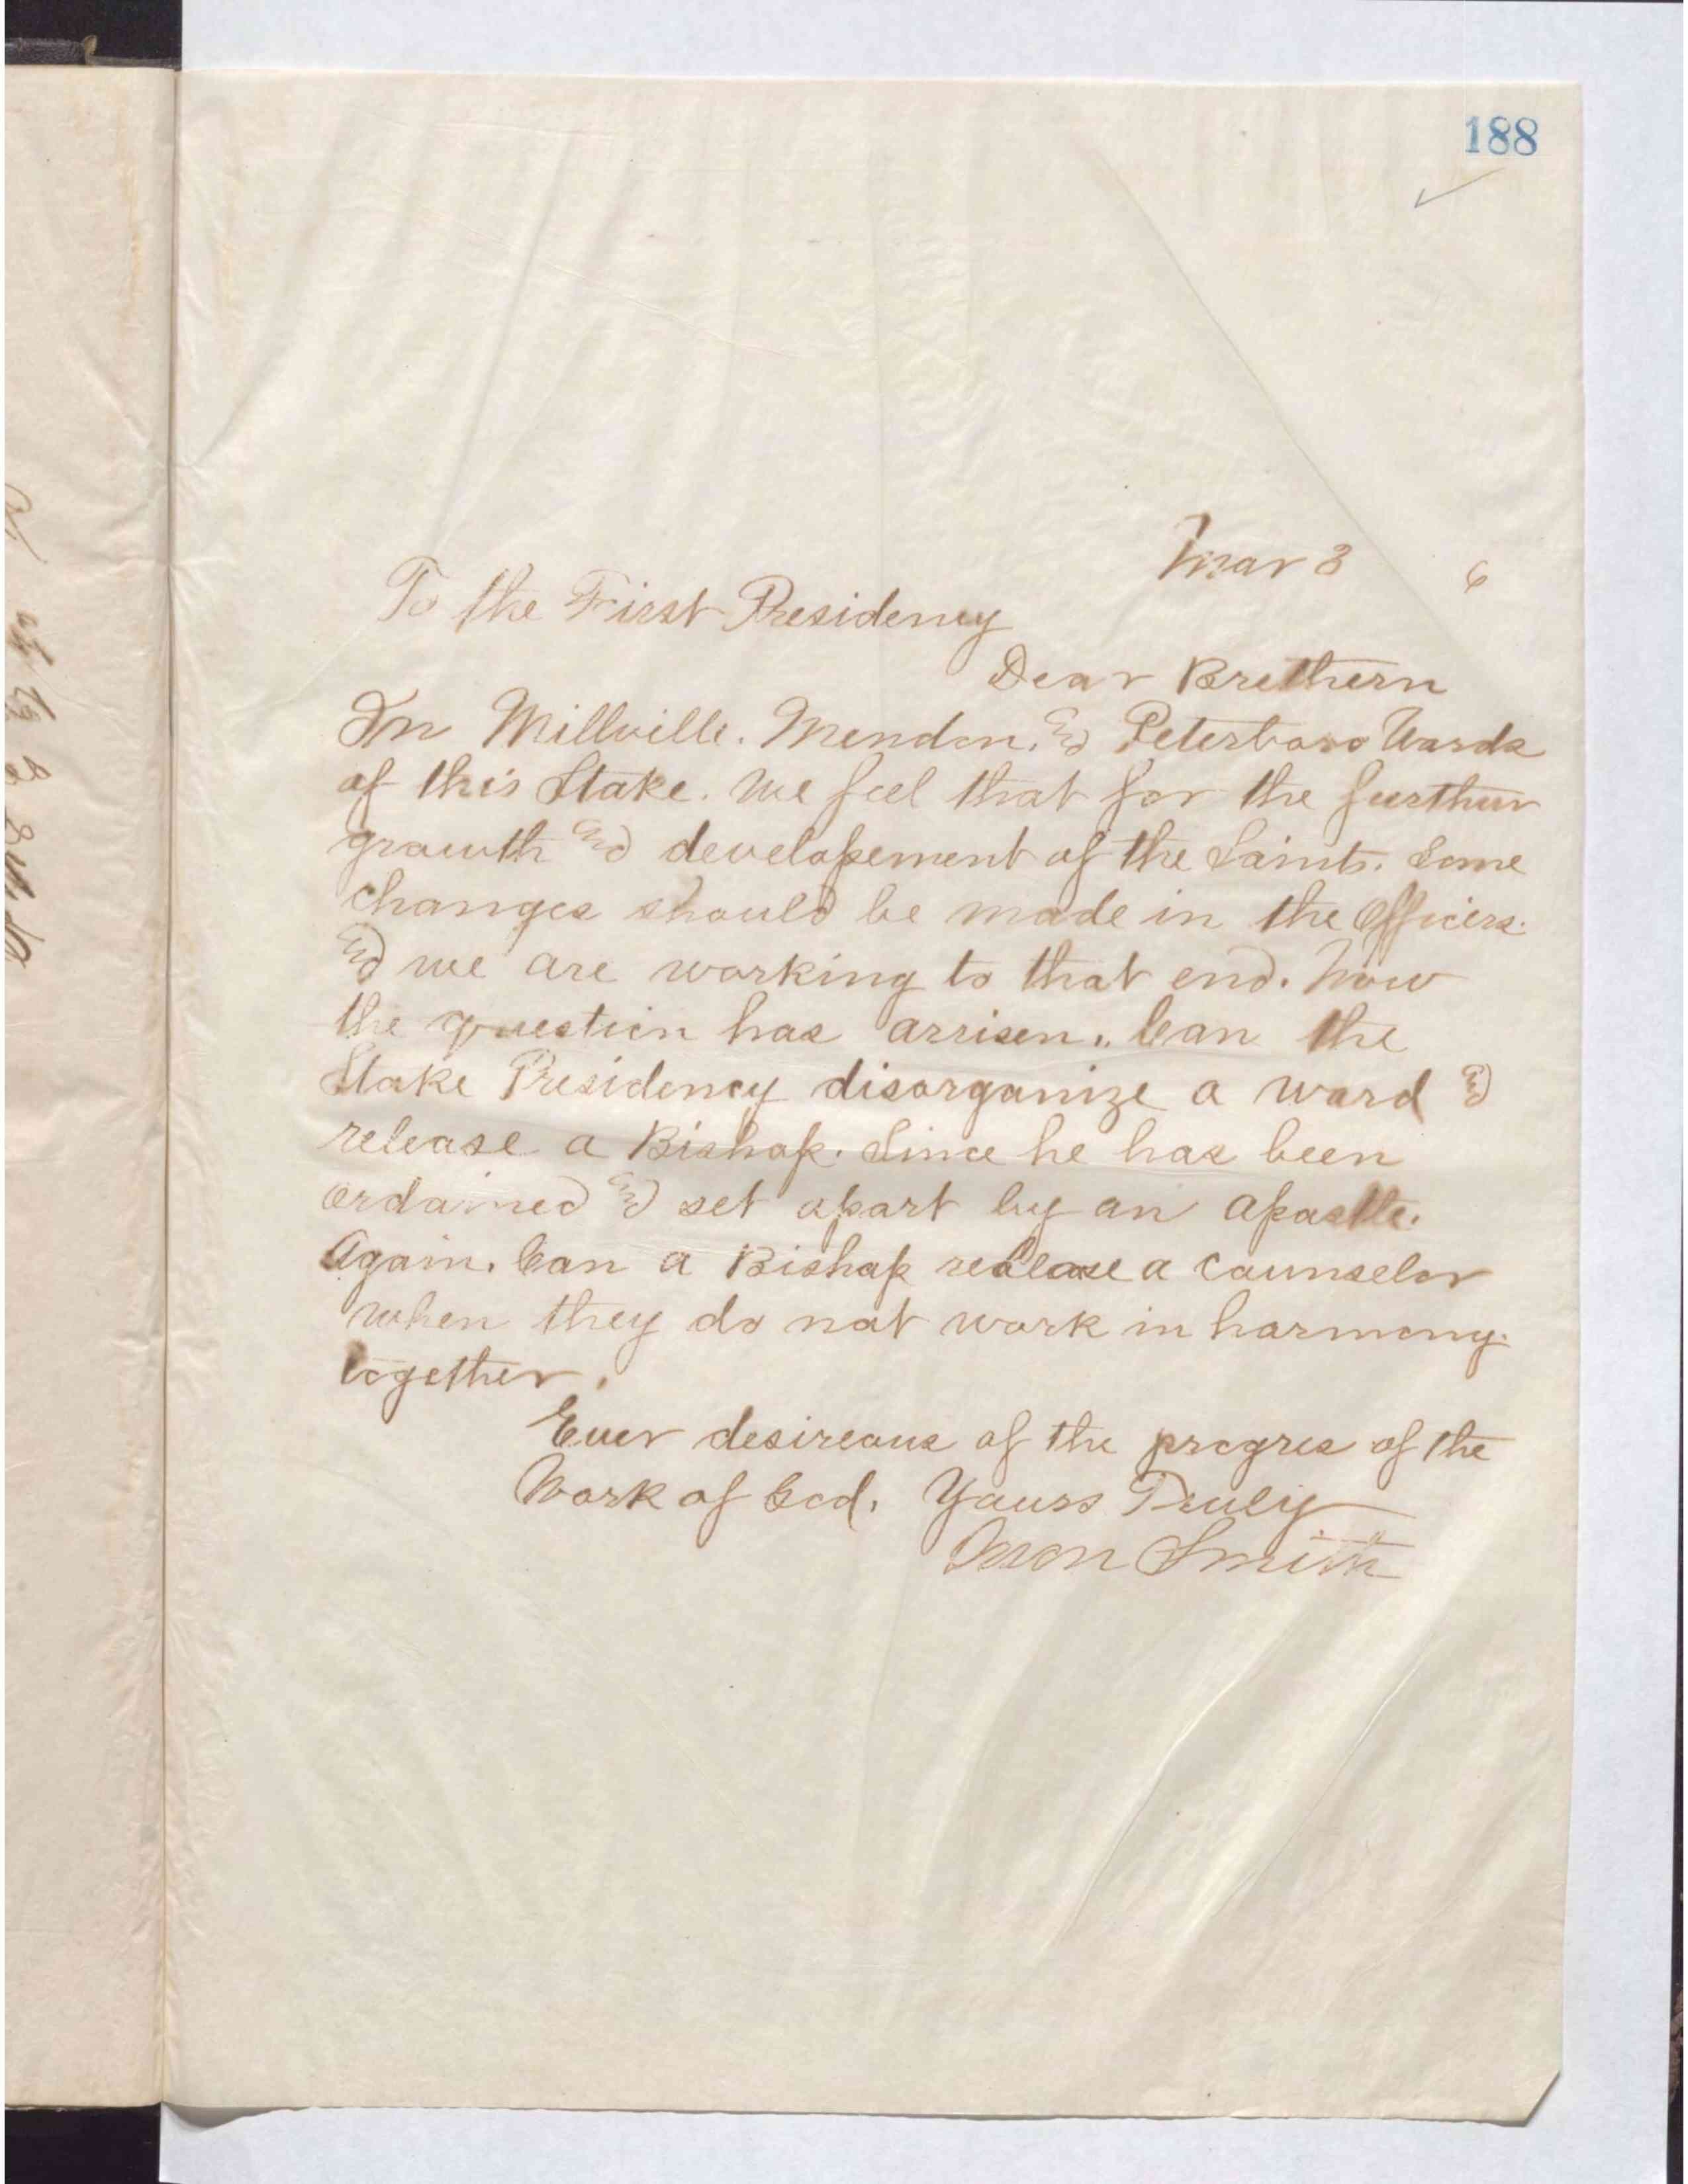 188
Mar 3 6
To the First Presidency
Dear Brethern
In Millville. Mendon. & Peterboro Wards
of this Stake. We feel that for the further
growth and developement of the Saints. Some
changes should be made in the Officers.
& we are working to that end. Now
the question has arrisen. Can the
Stake Presidency disorganize a ward &
release a Bishop. Since he has been
ordained & set apart by an Apostle.
Again. Can a Bishop release a Counselor
when they do not work in harmony.
together.
Ever desireous of the progres of the
Work of God. Yours Truly
Smith